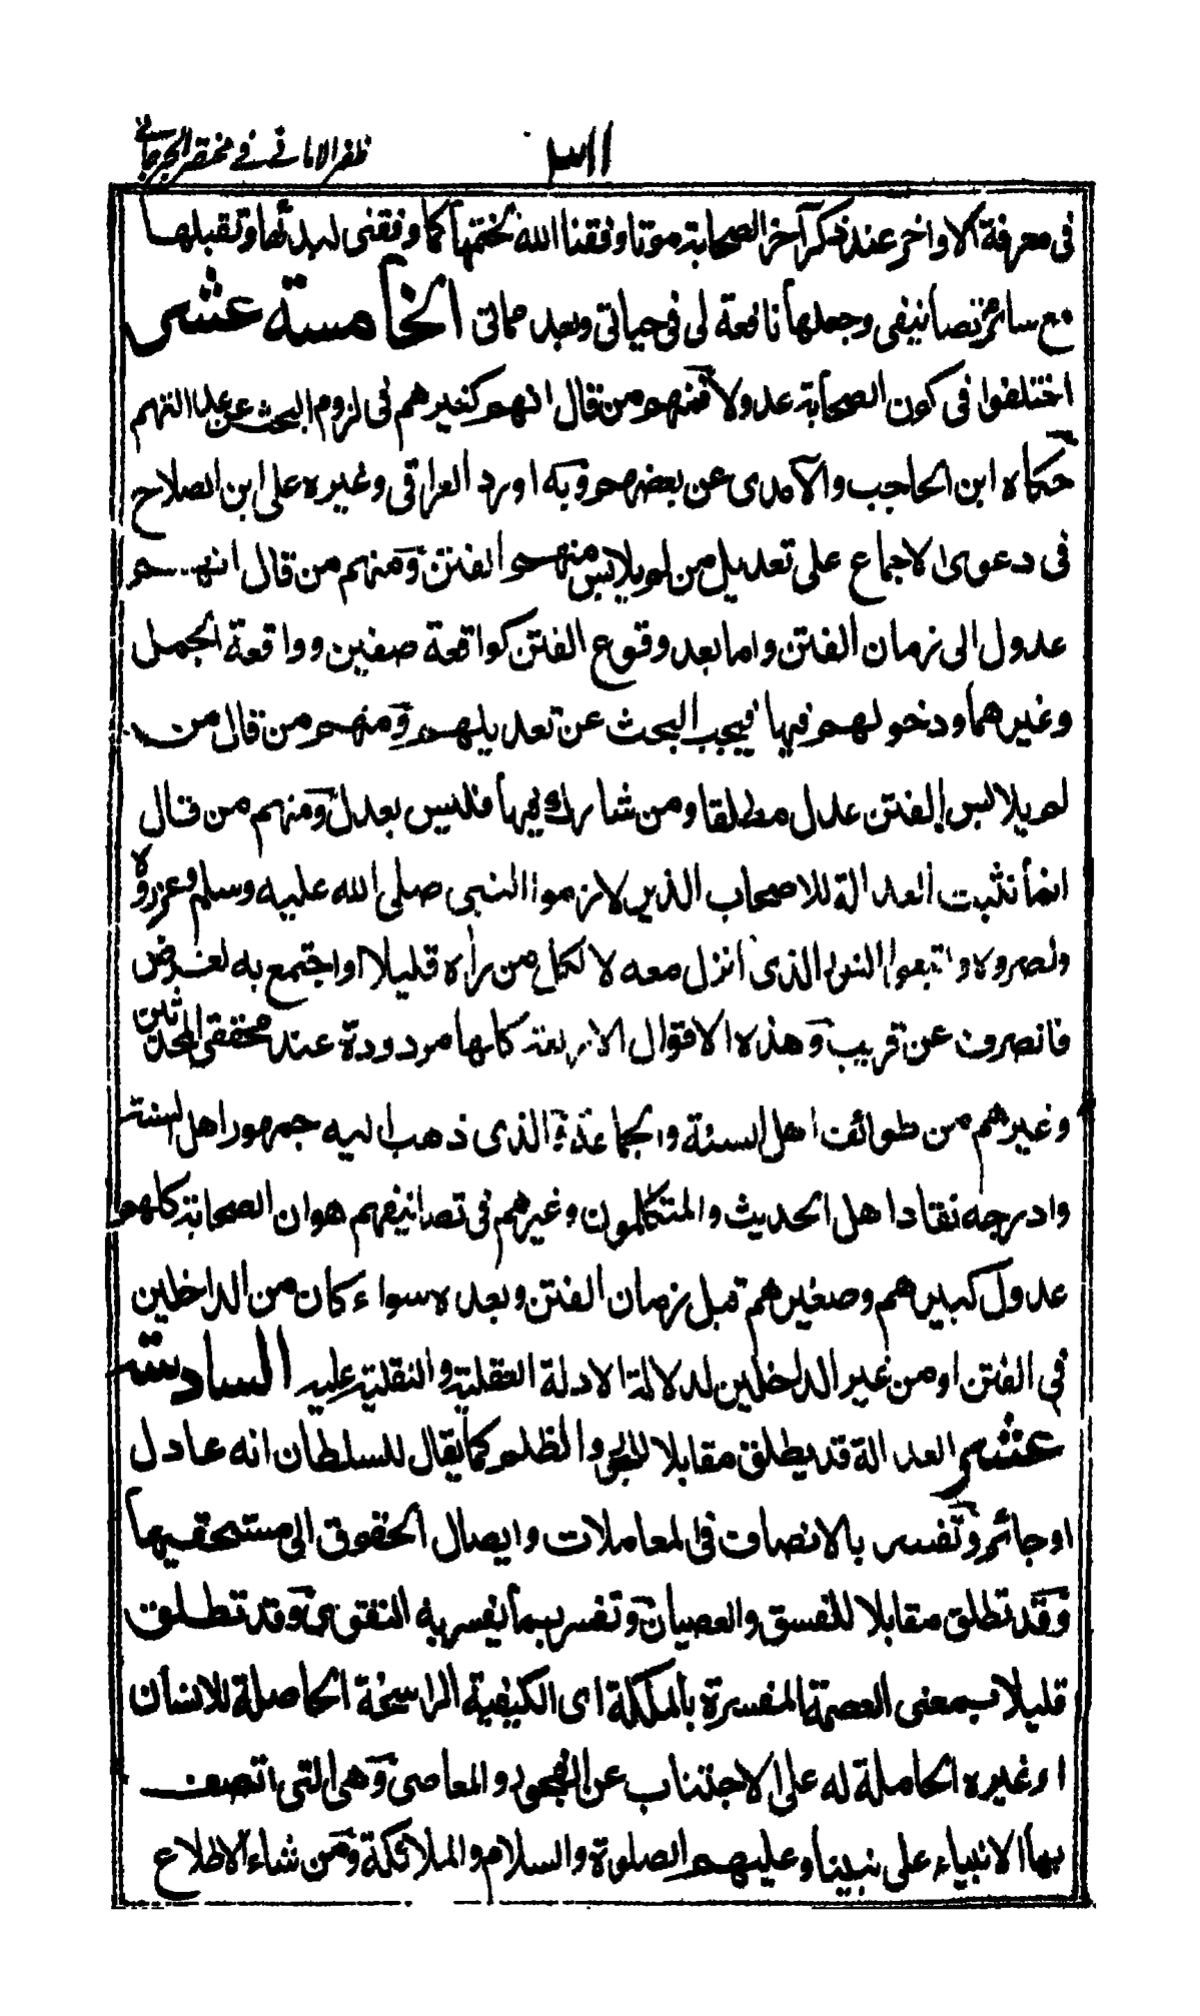 ظفر الامانی فی مختصر الجرجانی
٣١١
فی معرفة الاواخر عند ذکر آخر الصحابة موتا وفقنا الله لختمها کما وفقنی لبدئها وتقبلها
مع سائر تصانیفی وجعلها نافعة لی فی حیاتی وبعد مماتی الخامسة عشر
اختلفوا فی کون الصحابة عدولا فمنهم من قال انهم کغیرهم فی لزوم البحث عن عدالتهم
حکاه ابن الحاجب والآمدی عن بعضهم وبه اورد العراقی وغیره علی ابن الصلاح
فی دعوی الاجماع علی تعدیل من لم یلابس منهم الفتن ومنهم من قال انهم
عدول الی زمان الفتن واما بعد وقوع الفتن کواقعة صفین وواقعة الجمل
وغیرهما ودخولهم فیها فیجب البحث عن تعدیلهم ومنهم من قال من
لم یلابس الفتن عدل مطلقا ومن شارك فیها فلیس بعدل ومنهم من قال
انما تثبت العدالة للاصحاب الذین لازموا النبی صلی الله علیه وسلم وعزروه
ونصروه واتبعوا النور الذی انزل معه لا لکل من رأه قلیلا او اجتمع به لغرض
فانصرف عن قریب وهذه الاقوال الاربعة کلها مردودة عند محققی المحدثین
وغیرهم من طوائف اهل السنة والجماعة والذی ذهب الیه جمهور اهل السنة
وادرجه نقاد اهل الحدیث والمتکلمون وغیرهم فی تصانیفهم هو ان الصحابة کلهم
عدول کبیرهم وصغیرهم قبل زمان الفتن وبعده سواء کان من الداخلین
فی الفتن او من غیر الداخلین لدلالة الادلة العقلیة والنقلیة علیه السادسة
عشر العدالة قد یطلق مقابلا للجور والظلم کما یقال للسلطان انه عادل
او جائر وتفسر بالانصاف فی المعاملات وایصال الحقوق الی مستحقیها
وقد تطلق مقابلا للفسق والعصیان وتفسر بما یفسر به التقوی وقد تطلق
قلیلا بمعنی العصمة المفسرة بالملکة ای الکیفیة الراسخة الحاصلة للانسان
او غیره الحاملة له علی الاجتناب عن الفجور والمعاصی وهی التی اتصف
بها الانبیاء علی نبینا وعلیهم الصلوة والسلام والملائکة ومن شاء الاطلاع